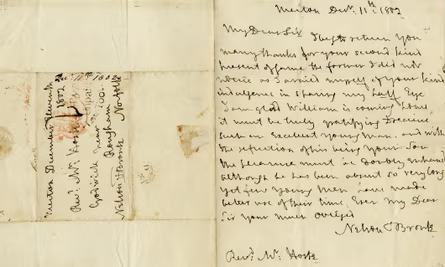 Merton December Eleventh
1802
Revd. Mr. Hoste
Godwick near
Rougham
Norfolk
Nelson & Bronte
Merton Decr. 11th 1802
My Dear Sir I beg to return you
many thanks for your second kind
present of game the former I did not
notice as I availed myself of your kind
indulgence in sparing my half Eye
I am glad William is coming home,
it must be truly gratifying to receive
such an excellent young man, and with
the reflection of his being your Son
the pleasure must be doubly enhanced
although he has been about so very long
yet few young Men have made
better use of their time, Ever My Dear
Sir your much obliged
Nelson & Bronte
Revd. Mr. Hoste